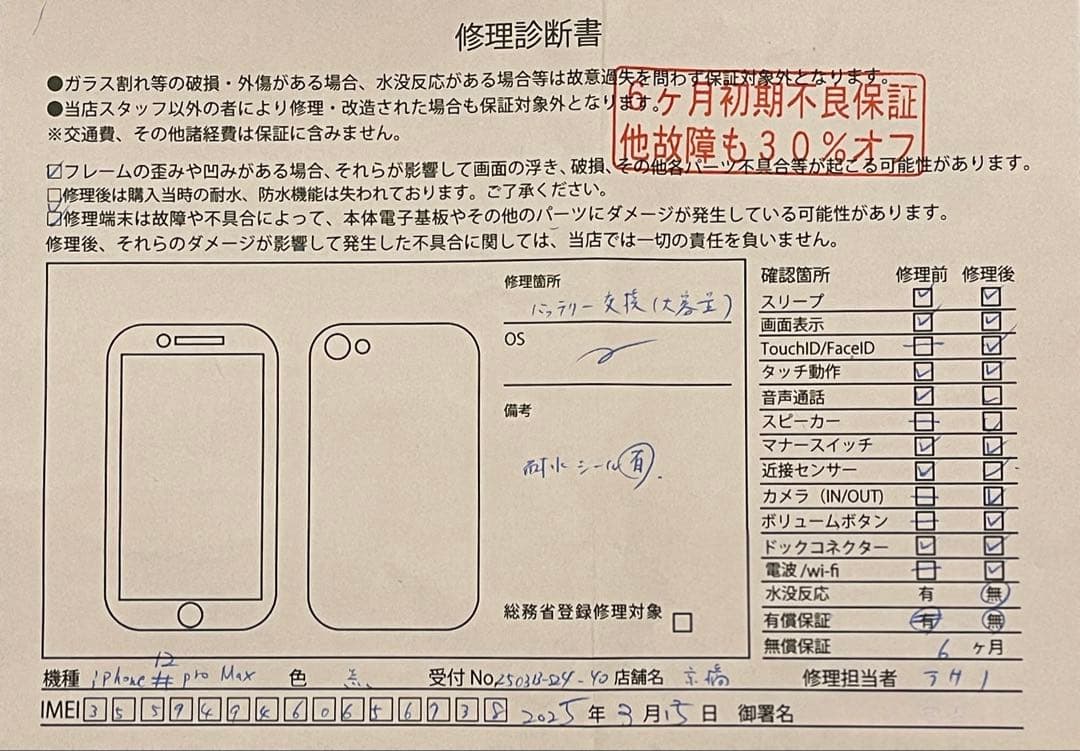 修理診断書
●ガラス割れ等の破損・外傷がある場合、水没反応がある場合等は故意過失を問わず保証対象外となります。
●当店スタッフ以外の者により修理・改造された場合も保証対象外となります。
※交通費、その他諸経費は保証に含みません。
6ヶ月初期不良保証
他故障も30%オフ
フレームの歪みや凹みがある場合、それらが影響して画面の浮き、破損、その他各パーツ不具合等が起こる可能性があります。
修理後は購入当時の耐水、防水機能は失われております。ご了承ください。
修理端末は故障や不具合によって、本体電子基板やその他のパーツにダメージが発生している可能性があります。
修理後、それらのダメージが影響して発生した不具合に関しては、当店では一切の責任を負いません。
修理箇所
バッテリー交換(大容量)
OS
備考
耐水シール有.
総務省登録修理対象
確認箇所 修理前 修理後
スリープ
画面表示
TouchID/FaceID
タッチ動作
音声通話
スピーカー
マナースイッチ
近接センサー
カメラ(IN/OUT)
ボリュームボタン
ドックコネクター
電波/wi-fi
水没反応 有 無
有償保証 有 無
無償保証 6 ヶ月
機種 iphone 12 pro Max 色 受付No. 店舗名 京橋 修理担当者
IMEI 2025年3月15日 御署名